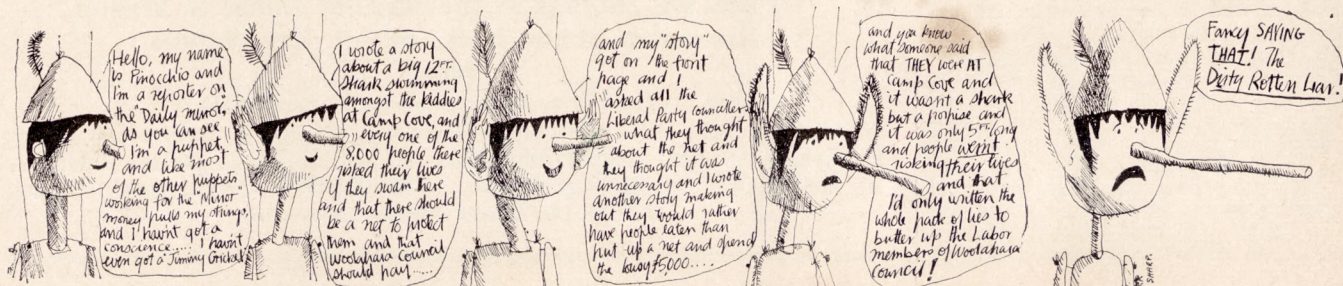 Hello, my name
is Pinocchio and
I'm a reporter on
the "Daily Mirror,
as you can see
I'm a puppet,
and like most
of the other puppets
working for the "Mirror"
money pulls my strings,
and I havnt got a
conscience..... I havnt
even got a "Jiminy Cricket"
I wrote a story
about a big 12FT.
shark swimming
amongst the kiddies
at Camp Cove, and
every one of the
8,000 people there
risked their lives
if they swam there
and that there should
be a net to protect
them and that
Woolahara Council
should pay.....
and my "story"
got on the front
page and I
asked all the
Liberal Party Councillers
what they thought
about the net and
they thought it was
unnecessary and I wrote
another story making
out they would rather
have people eaten than
put up a net and spend
the lousy £5,000....
and you know
what someone said
that THEY were AT
Camp Cove and
it wasnt a shark
but a porpise and
it was only 5FT. long
and people wernt
risking their lives
and that
I'd only written the
whole pack of lies to
butter up the Labor
members of Woolahara
Council!
Fancy SAYING
THAT! The
Dirty Rotten Liar!
SHARP.